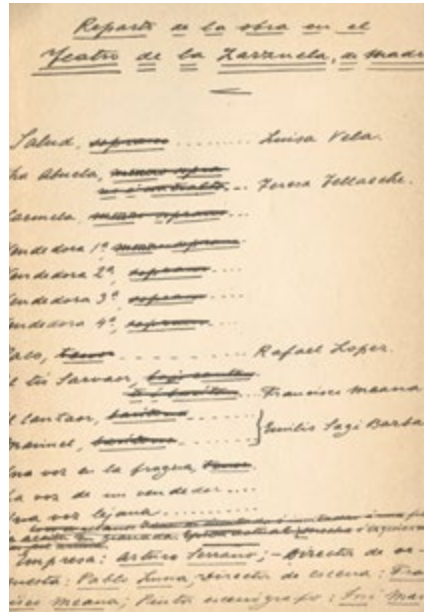 Reparto de la obra en el
Teatro de la Zarzuela, de Madr
Salud, soprano ........ Luisa Vela.
La Abuela, mezzo sopra
no ó contralto... Teresa Tellaeche.
Carmela, mezzo soprano...
Vendedora 1ª mezzo soprano
Vendedora 2ª, soprano....
Vendedora 3ª, soprano....
Vendedora 4ª, soprano....
Paco, tenor ........ Rafael Lopez.
El tio Sarvaor, bajo
barítono... Francisco Meana
El cantaor, barítono
Manuel, barítono ...... Emilio Sagi Barba
Una voz en la fragua, tenor.
La voz de un vendedor....
Una voz lejana........
Granada. Epoca actual
Empresa: Arturo Serrano; - Director de or-
questa: Pablo Luna; Director de escena: Fran
cisco Meana; Pintor escenógrafo: José Mar